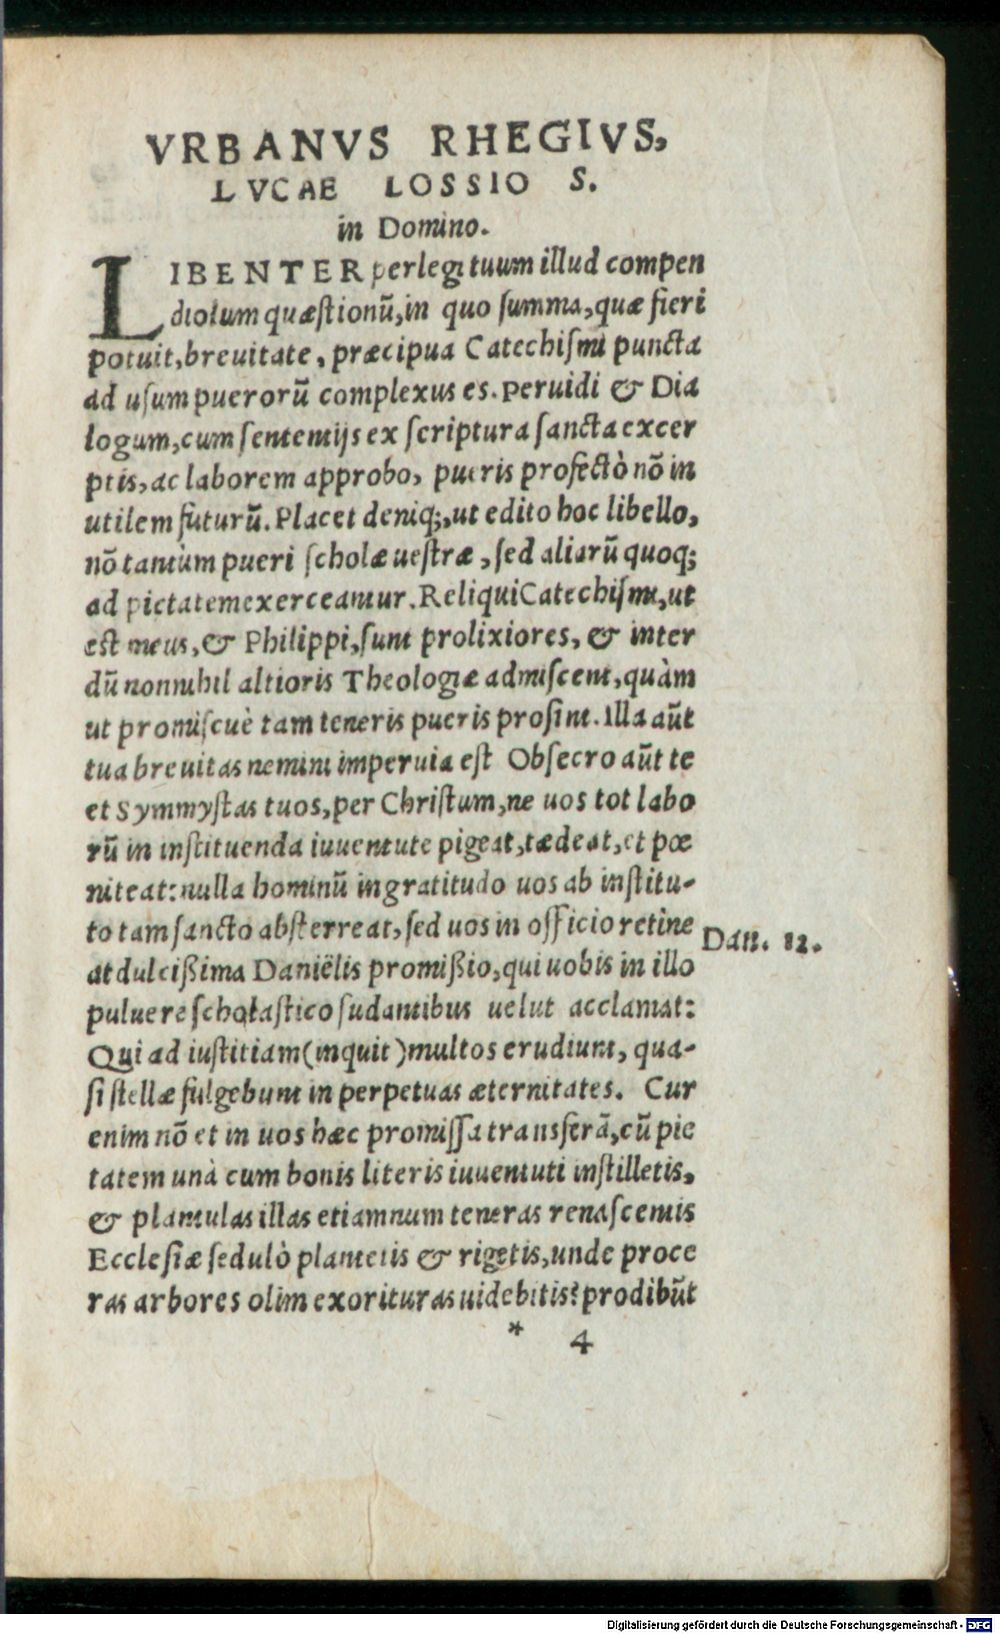 VRBANVS RHEGIVS,
LVCAE LOSSIO S.
in Domino.
LIBENTER perlegi tuum illud compen
diolum quæstionũ, in quo summa, quæ fieri
potuit, breuitate, præcipua Catechismi puncta
ad usum puerorũ complexus es. Peruidi & Dia
logum, cum sententijs ex scriptura sancta excer
ptis, ac laborem approbo, pueris profectò nõ in
utilem futurũ. Placet deniq;, ut edito hoc libello,
nõ tantùm pueri scholæ uestræ, sed aliarũ quoq;
ad pietatem exerceantur. Reliqui Catechismi, ut
est meus, & Philippi, sunt prolixiores, & inter
dũ nonnihil altioris Theologiæ admiscent, quàm
ut promiscuè tam teneris pueris prosint. Illa aũt
tua breuitas nemini imperuia est Obsecro aũt te
et Symmystas tuos, per Christum, ne uos tot labo
rũ in instituenda iuuentute pigeat, tædeat, et pœ
niteat: nulla hominũ ingratitudo uos ab institu-
to tam sancto absterreat, sed uos in officio retine
at dulcißima Daniëlis promißio, qui uobis in illo
Dan. 12.
puluere scholastico sudantibus uelut acclamat:
Qui ad iustitiam (inquit) multos erudiunt, qua-
si stellæ fulgebunt in perpetuas æternitates. Cur
enim nõ et in uos hæc promissa transferã, cũ pie
tatem unà cum bonis literis iuuentuti instilletis,
& plantulas illas etiamnum teneras renascentis
Ecclesiæ sedulò plantetis & rigetis, unde proce
ras arbores olim exorituras uidebitis? prodibũt
* 4
Digitalisierung gefördert durch die Deutsche Forschungsgemeinschaft - DFG